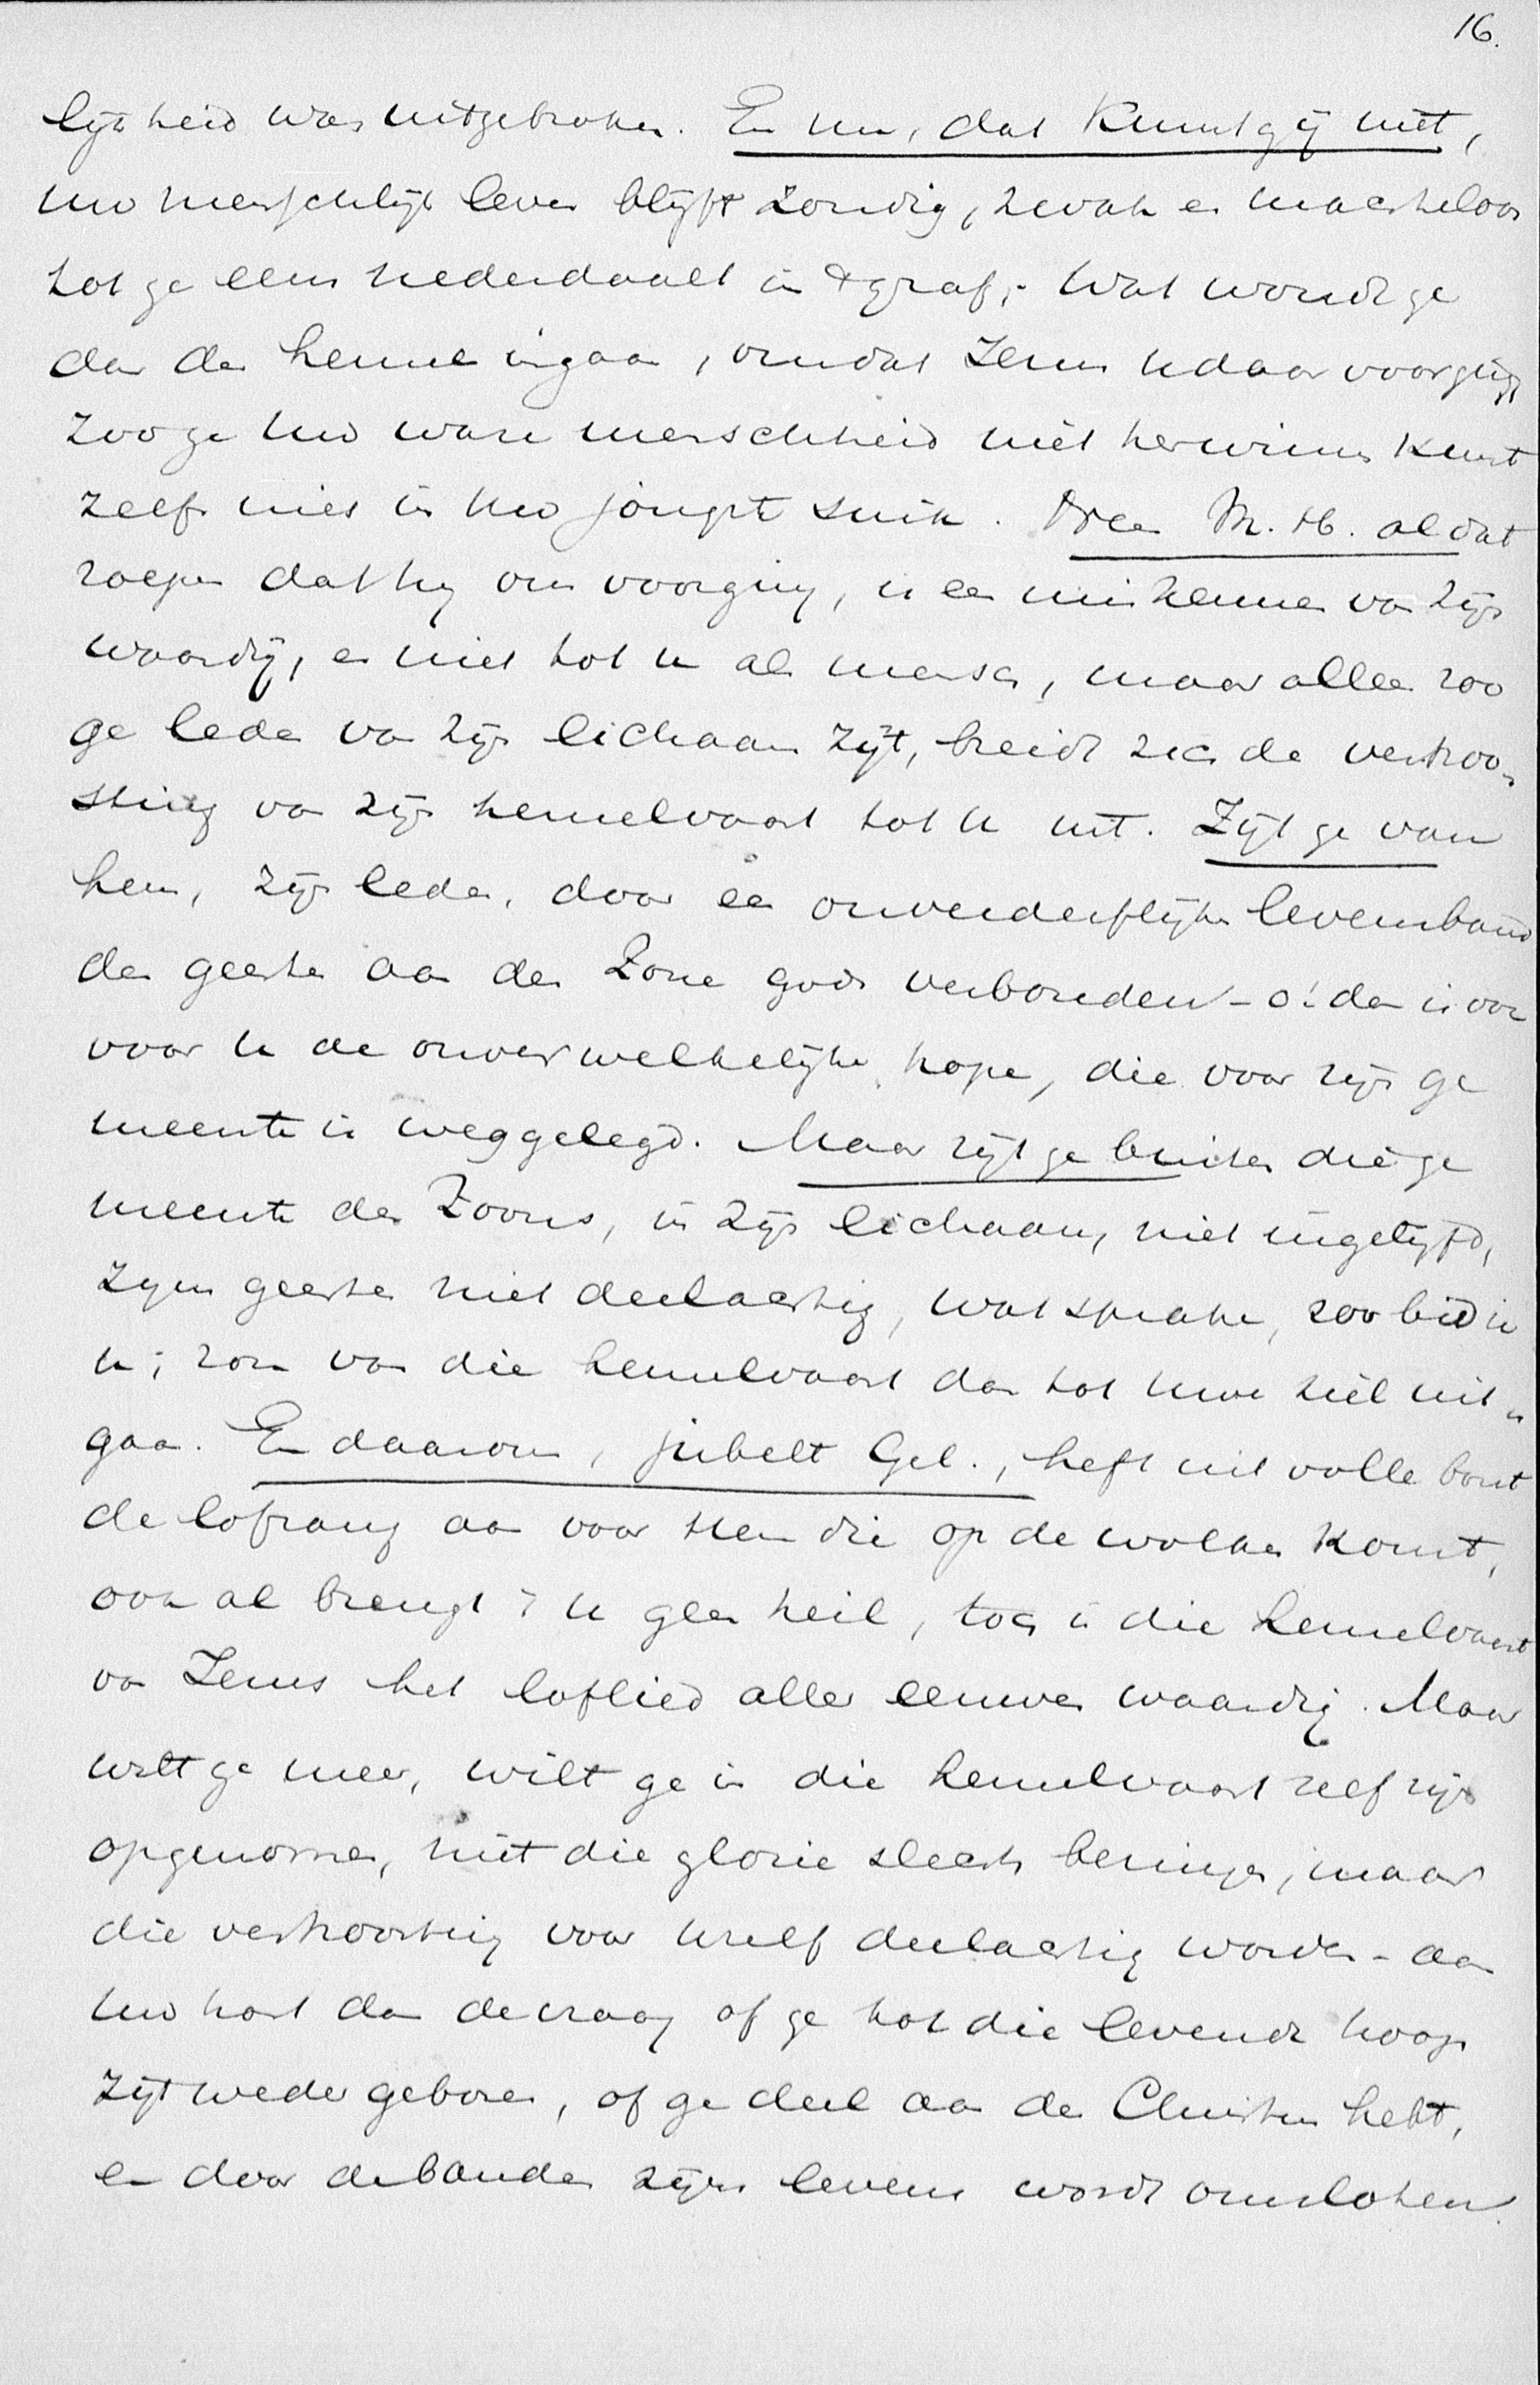 16.
lijkheid was uitgebroken. En nu, dat kunt gij niet,
uw menschlijk leven blijft zondig, zwak en machteloos
tot ge eens nederdaalt in 't graf, - Wat woudt ge
dan den hemel ingaan, omdat Jezus u daar voorging,
zoo ge uw ware menschheid niet herwinnen kunt
zelfs niet in uw jongste snik. Neen M. H. al dat
roepen dat hij ons voorging, is een miskennen van zijn
waardij, en niet tot u als mensch, maar alleen zoo
ge leden van zijn lichaam zijt, breidt zich de vertroo-
sting van zijn hemelvaart tot u uit. Zijt ge van
hem, zijn leden, door een onverderflijken levensband
des geestes aan den Zone gods verbonden - o! dan is ook
voor u de onverwelkelijke hope, die voor zijn ge
meente is weggelegd. Maar zijt ge buiten die ge
meente des Zoons, in zijn lichaam, niet ingelijfd,
zijns geestes niet deelachtig, wat sprake, zoo bid ik
u; zou van die hemelvaart dan tot uwe ziel uit
gaan. En daarom, jubelt Gel., heft uit volle borst
de lofzang aan voor Hem die op de wolken komt,
ook al brengt 't u geen heil, toch is die hemelvaart
van Jezus het loflied aller eeuwen waardig. Maar
wilt ge meer, wilt ge in die hemelvaart zelf zijn
opgenomen, niet die glorie slechts bezingen, maar
die vertroosting voor uzelf deelachtig worden - aan
uw hart dan de vraag of ge tot die levende hoop
zijt wedergeboren, of ge deel aan den Christus hebt,
en door de banden zijns levens wordt omsloten.